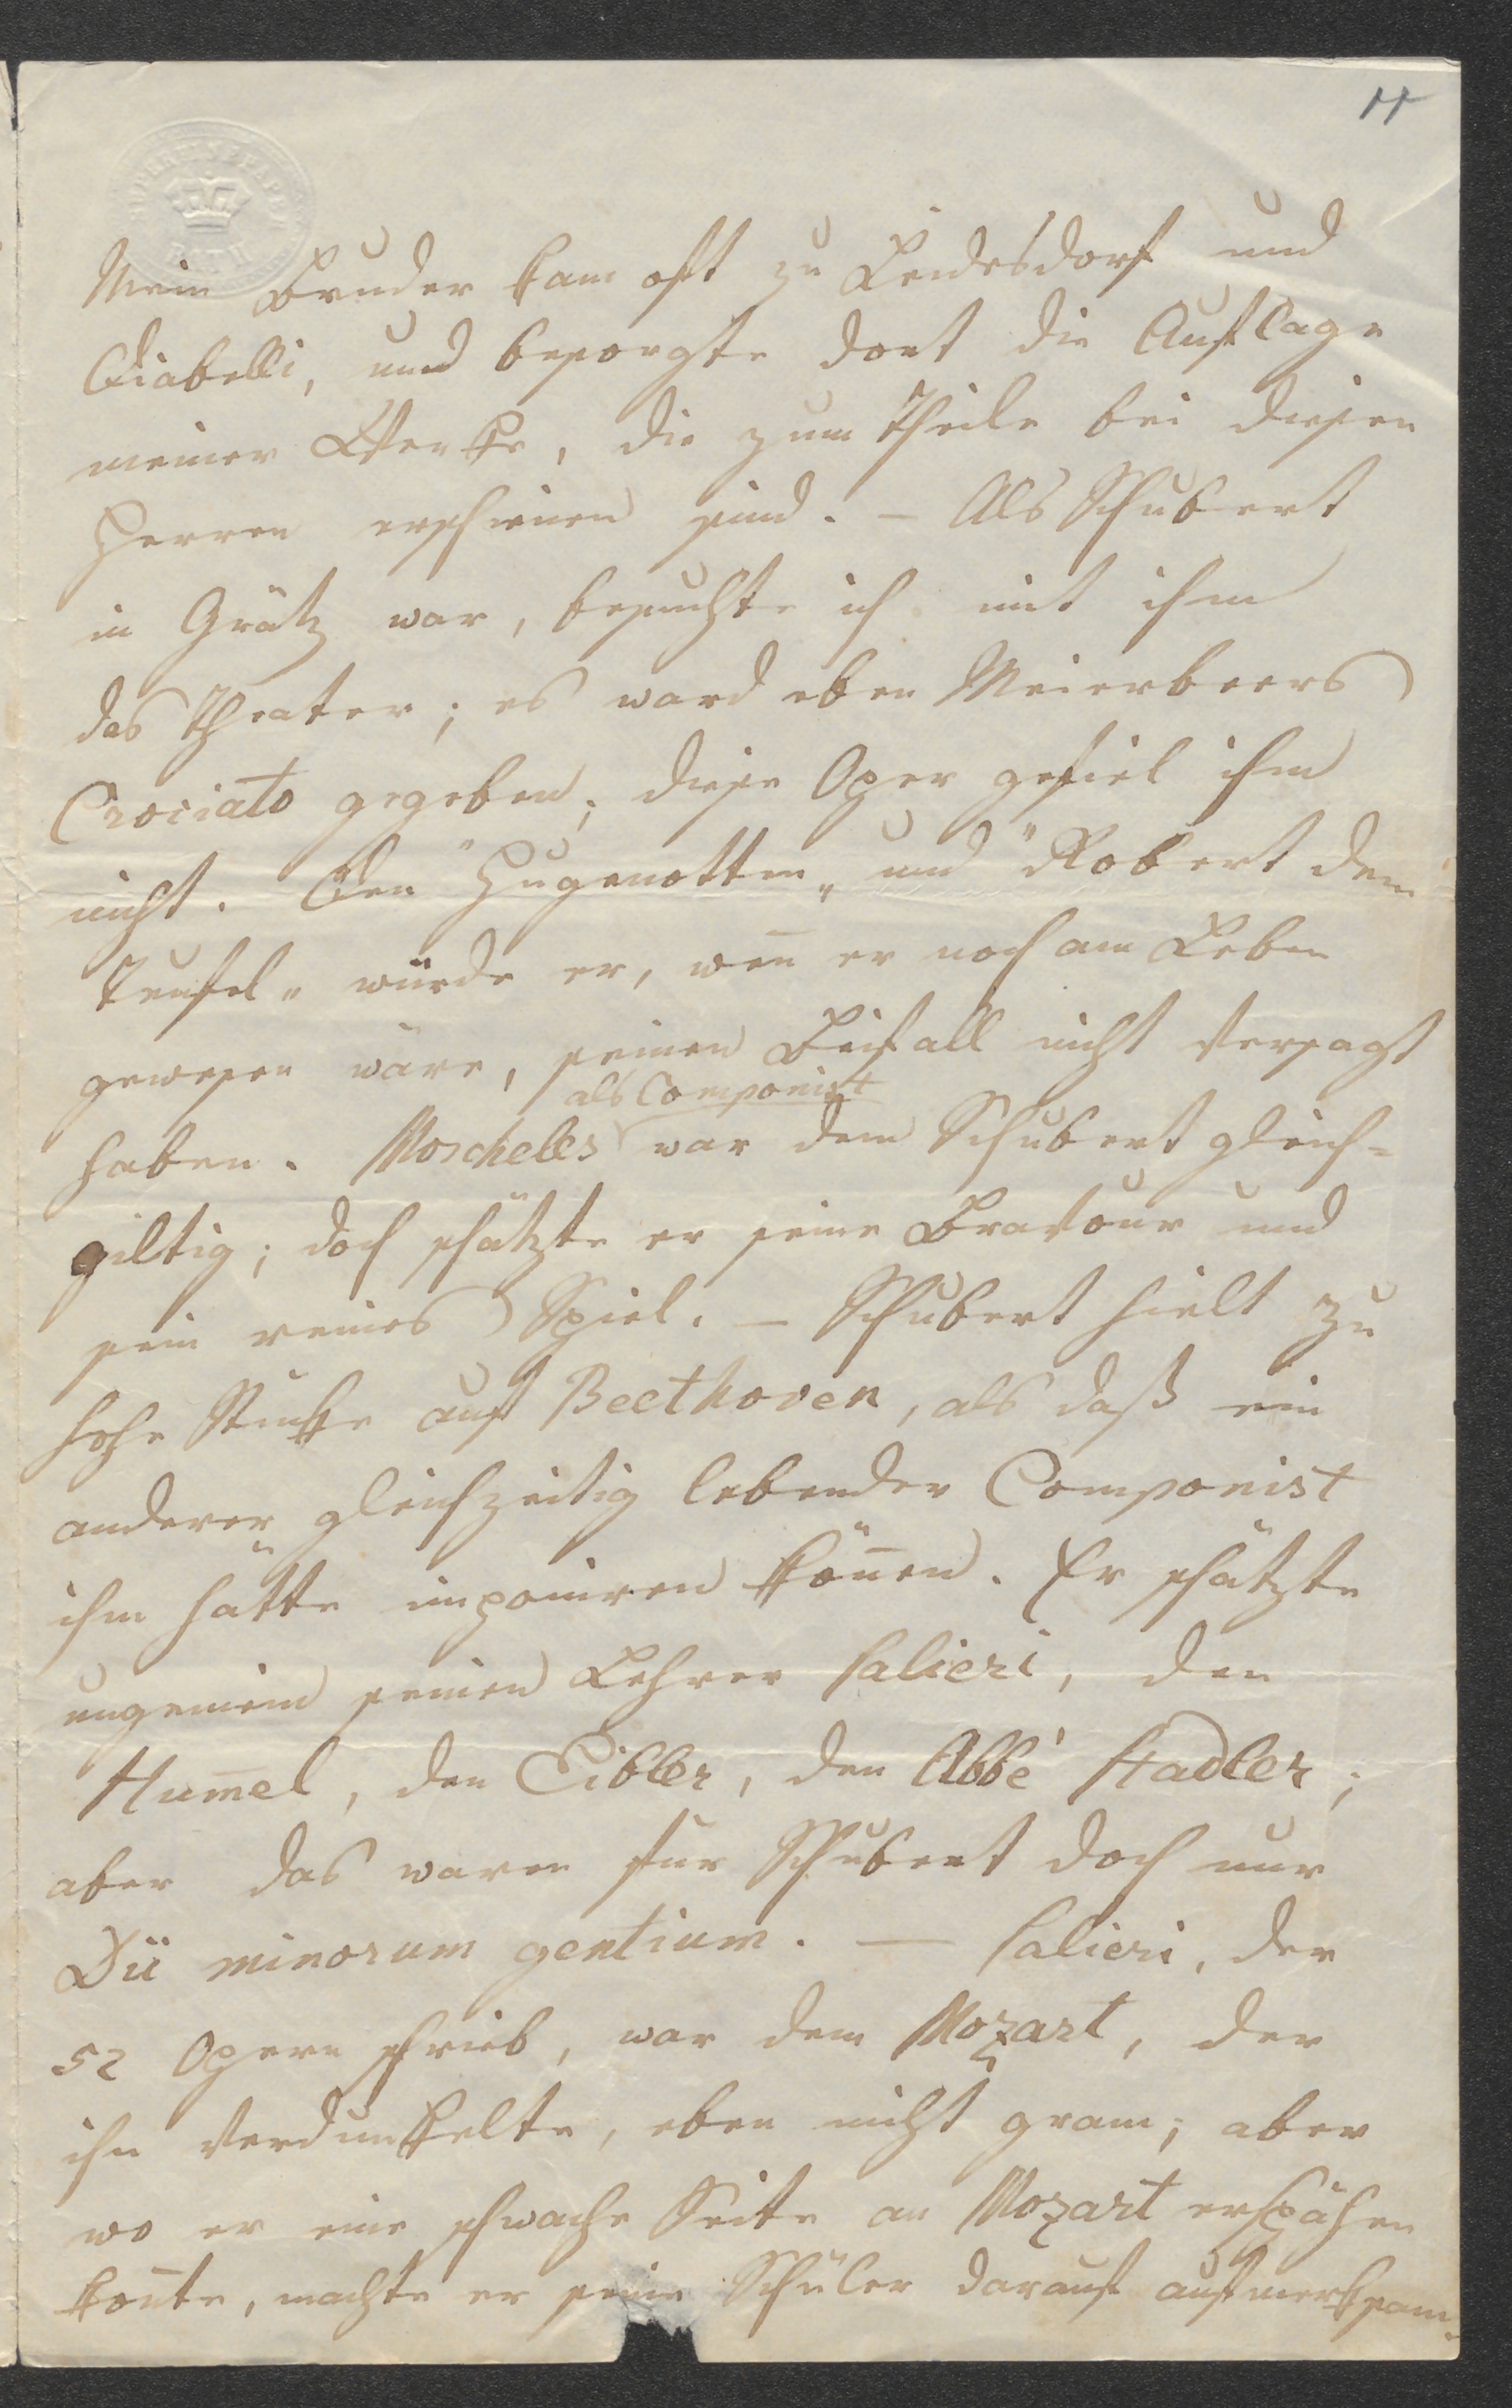 11
Mein Bruder kam oft zu Leidesdorf und
Diabelli, und besorgte dort die Auflage
meiner Werke, die zum Theile bei diesen
Herren erschienen sind. – Als Schubert
in Grätz war, besuchte ich mit ihm
das Theater; es ward eben Meierbeers
Crociato gegeben; diese Oper gefiel ihm
nicht. Den "Hugenotten" und "Robert dem
Teufel" würde er, wen̄ er noch am Leben
gewesen wäre, seinen Beifall nicht versagt
als Componist
haben. Moscheles war dem Schubert gleich=
giltig; doch schätzte er seine Bravour und
sein reines Spiel. – Schubert hielt zu
hohe Stücke auf Beethoven, als daß ein
anderer gleichzeitig lebender Componist
ihm hätte imponiren kön̄en. Er schätzte
ungemein seinen Lehrer Salieri, den
Hum̄el, den Eibler, den Abbé Stadler;
aber das waren für Schubert doch nur
Dii minorum gentium. — Salieri, der
52 Opern schrieb, war dem Mozart, der
ihn verdunkelte, eben nicht gram; aber
wo er eine schwache Seite an Mozart erspähen
kon̄te, machte er seine Schüler darauf aufmerksam.